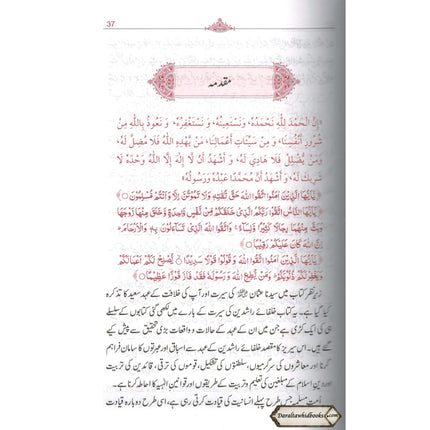 37
مقدمہ
«إِنَّ الْحَمْدَ لِلَّهِ نَحْمَدُهُ، وَنَسْتَعِينُهُ، وَنَسْتَغْفِرُهُ، وَنَعُوذُ بِاللَّهِ مِنْ
شُرُورِ أَنْفُسِنَا، وَمِنْ سَيِّئَاتِ أَعْمَالِنَا، مَنْ يَهْدِهِ اللَّهُ فَلَا مُضِلَّ لَهُ،
وَمَنْ يُضْلِلْ فَلَا هَادِيَ لَهُ، وَأَشْهَدُ أَنْ لَا إِلٰهَ إِلَّا اللَّهُ وَحْدَهُ لَا
شَرِيكَ لَهُ، وَأَشْهَدُ أَنَّ مُحَمَّدًا عَبْدُهُ وَرَسُولُهُ»
﴿يٰٓاَيُّهَا الَّذِيْنَ اٰمَنُوا اتَّقُوا اللهَ حَقَّ تُقٰتِهٖ وَلَا تَمُوْتُنَّ اِلَّا وَاَنْتُمْ مُّسْلِمُوْنَ﴾
﴿يٰٓاَيُّهَا النَّاسُ اتَّقُوْا رَبَّكُمُ الَّذِيْ خَلَقَكُمْ مِّنْ نَّفْسٍ وَّاحِدَةٍ وَّخَلَقَ مِنْهَا زَوْجَهَا
وَبَثَّ مِنْهُمَا رِجَالًا كَثِيْرًا وَّنِسَآءً وَاتَّقُوا اللهَ الَّذِيْ تَسَآءَلُوْنَ بِهٖ وَالْاَرْحَامَ
اِنَّ اللهَ كَانَ عَلَيْكُمْ رَقِيْبًا﴾
﴿يٰٓاَيُّهَا الَّذِيْنَ اٰمَنُوا اتَّقُوا اللهَ وَقُوْلُوْا قَوْلًا سَدِيْدًا ○ يُّصْلِحْ لَكُمْ اَعْمَالَكُمْ
وَيَغْفِرْ لَكُمْ ذُنُوْبَكُمْ وَمَنْ يُّطِعِ اللهَ وَرَسُوْلَهٗ فَقَدْ فَازَ فَوْزًا عَظِيْمًا﴾
زیر نظر کتاب میں سیدنا عثمان کی سیرت اور آپ کی خلافت کے عہد سعید کا تذکرہ
کیا گیا ہے۔ یہ کتاب خلفائے راشدین کی سیرت کے بارے میں لکھی گئی کتابوں کے سلسلے
ہی کی ایک کڑی ہے جن میں ان کے عہد کے حالات و واقعات بڑی تحقیق سے پیش کیے
گئے ہیں۔ اس سیریز کا مقصد خلفائے راشدین کے عہد سے اسباق اور عبرتوں کا سامان فراہم
کرنا اور معاشروں کی سرگرمیوں، سلطنتوں کی تشکیل، قوموں کی ترقی، قائدین کی تربیت
اور دین اسلام کے مبلغین کی تعلیم و تربیت کے طریقوں اور قوانین الٰہیہ کا احاطہ کرنا ہے۔
امت مسلمہ جس طرح پہلے انسانیت کی قیادت کرتی رہی ہے، اسی طرح دوبارہ قیادت
Daraltawhidbooks.com/